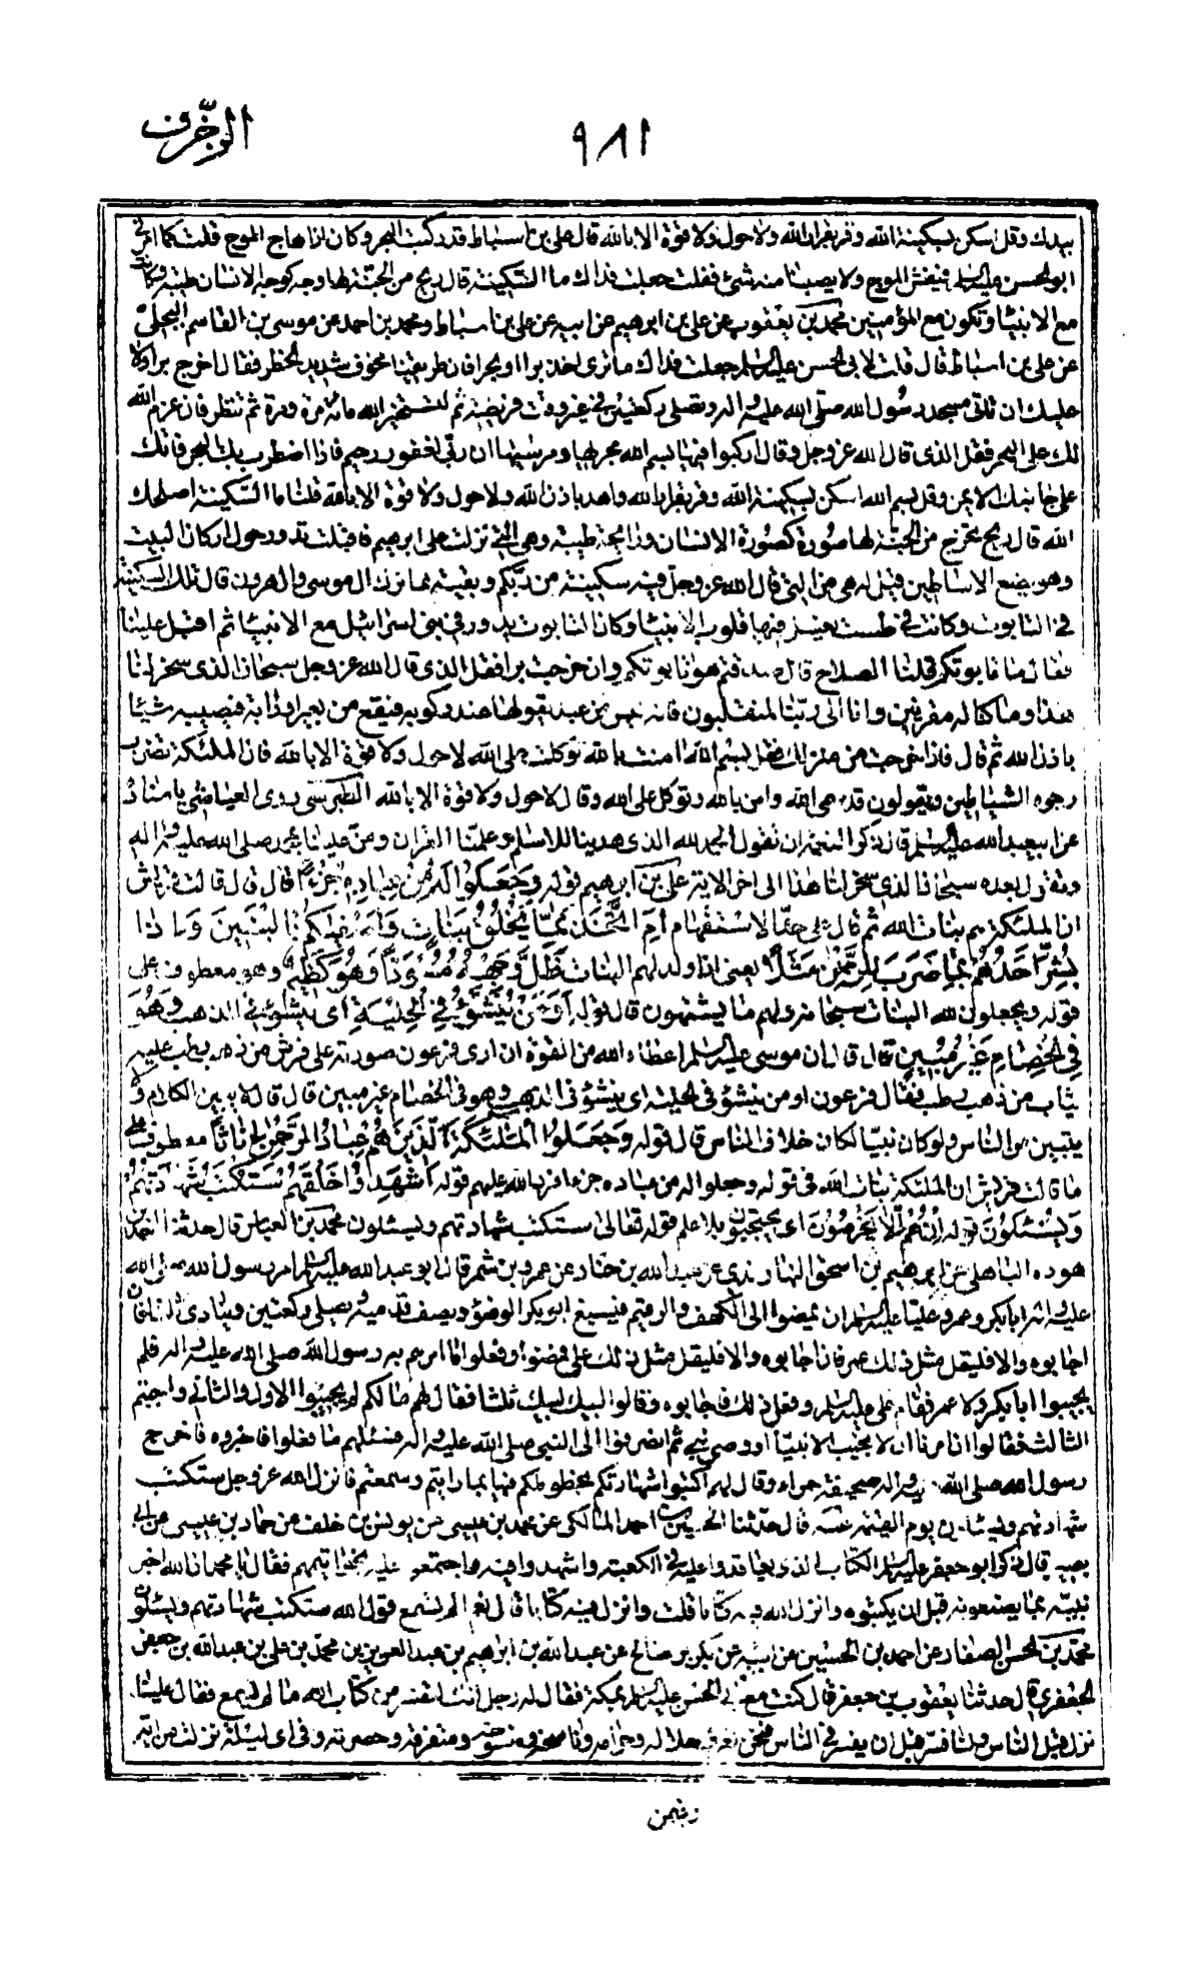 الزخرف
٩٨١
بيدك وقل اسكن بسكينة الله وقر بقرار الله ولا حول ولا قوة الا بالله قال علي بن اسباط قد ركبت البحر وكان اذا هاج الموج قلت كما امرني
ابو الحسن عليه السلم فيتنفس الموج ولا يصيبنا منه شئ فقلت جعلت فداك ما السكينة قال ريح من الجنة لها وجه كوجه الانسان طيبة وكانت
مع الانبيآء وتكون مع المؤمنين محمد بن يعقوب عن علي بن ابرهيم عن ابيه عن علي بن اسباط ومحمد بن احمد عن موسى بن القاسم البجلي
عن علي بن اسباط قال قلت لابي الحسن عليه السلم جعلت فداك ما ترى اخذ برا او بحرا فان طريقنا مخوف شديد الخطر فقال اخرج برا ولا
عليك ان تاتى مسجد رسول الله صلى الله عليه واله وتصلى ركعتين في غير وقت فريضة ثم لتستخير الله مائة مرة ومرة ثم تنظر فان عزم الله
لك على البحر فقل الذى قال الله عز وجل وقال اركبوا فيها بسم الله مجريها ومرسيها ان ربي لغفور رحيم فاذا اضطرب بك البحر فاتك
على جانبك الايمن وقل بسم الله اسكن بسكينة الله وقر بقرار الله واهد باذن الله ولا حول ولا قوة الا بالله قلنا ما السكينة اصلحك
الله قال ريح تخرج من الجنة لها صورة كصورة الانسان ورايحة طيبة وهى التي نزلت على ابرهيم فاقبلت تدور حول اركان البيت
وهو يضع الاساطين قيل له هى من التى قال الله عز وجل فيه سكينة من ربكم وبقية مما ترك ال موسى وال هرون قال تلك السكينة
في التابوت وكانت في طست يغسل فيها قلوب الانبيآء وكان التابوت يدور في بنى اسرائيل مع الانبيآء ثم اقبل علينا
فقال ما تابوتكم قلنا السلاح قال صدقتم هو تابوتكم وان خرجت برا فقل الذى قال الله عز وجل سبحان الذى سخر لنا
هذا وما كنا له مقرنين وانا الى ربنا لمنقلبون فانه ليس من عبد يقولها عند ركوبه فيقع من بعير او دابة فيصيبه شيئا
باذن الله ثم قال فاذا خرجت من منزلك فقل بسم الله امنت بالله توكلت على الله لا حول ولا قوة الا بالله فان الملئكة تضرب
وجوه الشياطين ويقولون قد سمى الله وامن بالله وتوكل على الله وقال لا حول ولا قوة الا بالله الطبرسي روى العياشي باسناده
عن ابيعبد الله عليه السلم قال ذكر النعمة ان تقول الحمد لله الذى هدينا للاسلم وعلمنا القران ومن علينا بمحمد صلى الله عليه واله
وتقول بعده سبحان الذى سخر لنا هذا الى اخر الاية علي بن ابرهيم قوله وجعلوا له من عباده جزءا قال قال قالت قريش
ان الملئكة هم بنات الله ثم قال على حد الاستفهام ام اتخذ مما يخلق بنات واصفيكم بالبنين واذا
بشر احدهم بما ضرب للرحمن مثلا يعنى اذا ولد لهم البنات ظل وجهه مسودا وهو كظيم وهو معطوف على
قوله ويجعلون لله البنات سبحانه ولهم ما يشتهون قال قوله او من ينشؤ في الحلية اى ينشؤ في الذهب وهو
في الخصام غير مبين قال قال ان موسى عليه السلم اعطاه الله من القوة ان ارى فرعون صورته على فرس من ذهب رطب عليه
ثياب من ذهب رطب فقال فرعون اومن ينشؤ في الحلية اى ينشؤ في الذهب وهو في الخصام غير مبين قال قال لا يبين الكلام ولا
يتبين من الناس ولو كان نبيا لكان خلاف الناس قال قوله وجعلوا الملئكة الذين هم عباد الرحمن اناثا معطوف على
ما قالت قريش ان الملئكة بنات الله في قوله وجعلوا له من عباده جزءا فرد الله عليهم قوله اشهدوا خلقهم ستكتب شهادتهم
ويسئلون قوله ان هم الا يخرصون اى يحتجون بلا علم قوله تعالى ستكتب شهادتهم ويسئلون محمد بن العباس قال حدثنا احمد بن
هوده الباهلي عن ابرهيم بن اسحق النهاوندى عن عبد الله بن حماد عن عمرو بن شمر قال قال ابو عبد الله عليه السلم امر رسول الله صلى الله
عليه واله ابابكر وعمر وعليا عليه السلم ان يمضوا الى الكهف والرقيم فيسبغ ابو بكر الوضوء ويصف قدميه ويصلي ركعتين وينادى ثلثا فان
اجابوه والا فليقل مثل ذلك عمر فان اجابوه والا فليقل مثل ذلك علي فمضوا وفعلوا ما امرهم به رسول الله صلى الله عليه واله فلم
يجيبوا ابابكر ولا عمر فقام علي عليه السلم وفعل ذلك فاجابوه وقالوا لبيك لبيك ثلثا فقال لهم ما لكم لم تجيبوا الاول والثاني واجبتم
الثالث فقالوا انا امرنا ان لا نجيب الا نبيا او وصى نبي ثم انصرفوا الى النبي صلى الله عليه واله فسئلهم ما فعلوا فاخبروه فاخرج
رسول الله صلى الله عليه واله صحيفة حمراء وقال لهم اكتبوا شهادتكم بخطوطكم فيها بما رايتم وسمعتم فانزل الله عز وجل ستكتب
شهادتهم ويسئلون يوم القيمة عنه قال حدثنا الحسين بن احمد المالكى عن محمد بن عيسى عن يونس بن خلف عن حماد بن عيسى عن ابي
بصير قال ذكر ابو جعفر عليه السلم الكتاب الذى تعاقدوا عليه في الكعبة واشهدوا فيه واجتمعوا عليه بخواتيمهم فقال يا محمد ان الله اخبر
نبيه بما يصنعونه قبل ان يكتبوه وانزل الله فيه كتابا قلت وانزل فيه كتابا قال نعم الم تسمع قول الله ستكتب شهادتهم ويسئلون
محمد بن الحسن الصفار عن احمد بن الحسين عن ابيه عن بكر بن صالح عن عبد الله بن ابرهيم بن عبد العزيز بن محمد بن علي بن عبد الله بن جعفر
الجعفرى قال حدثنا يعقوب بن جعفر قال كنت مع ابي الحسن عليه السلم بمكة فقال له رجل انك لتفسر من كتاب الله ما لم تسمع فقال علينا
نزل قبل الناس ولنا فسر قبل ان يفسر في الناس فنحن نعرف حلاله وحرامه وناسخه ومنسوخه ومتفرقه وحضرته وفى اى ليلة نزلت من اية